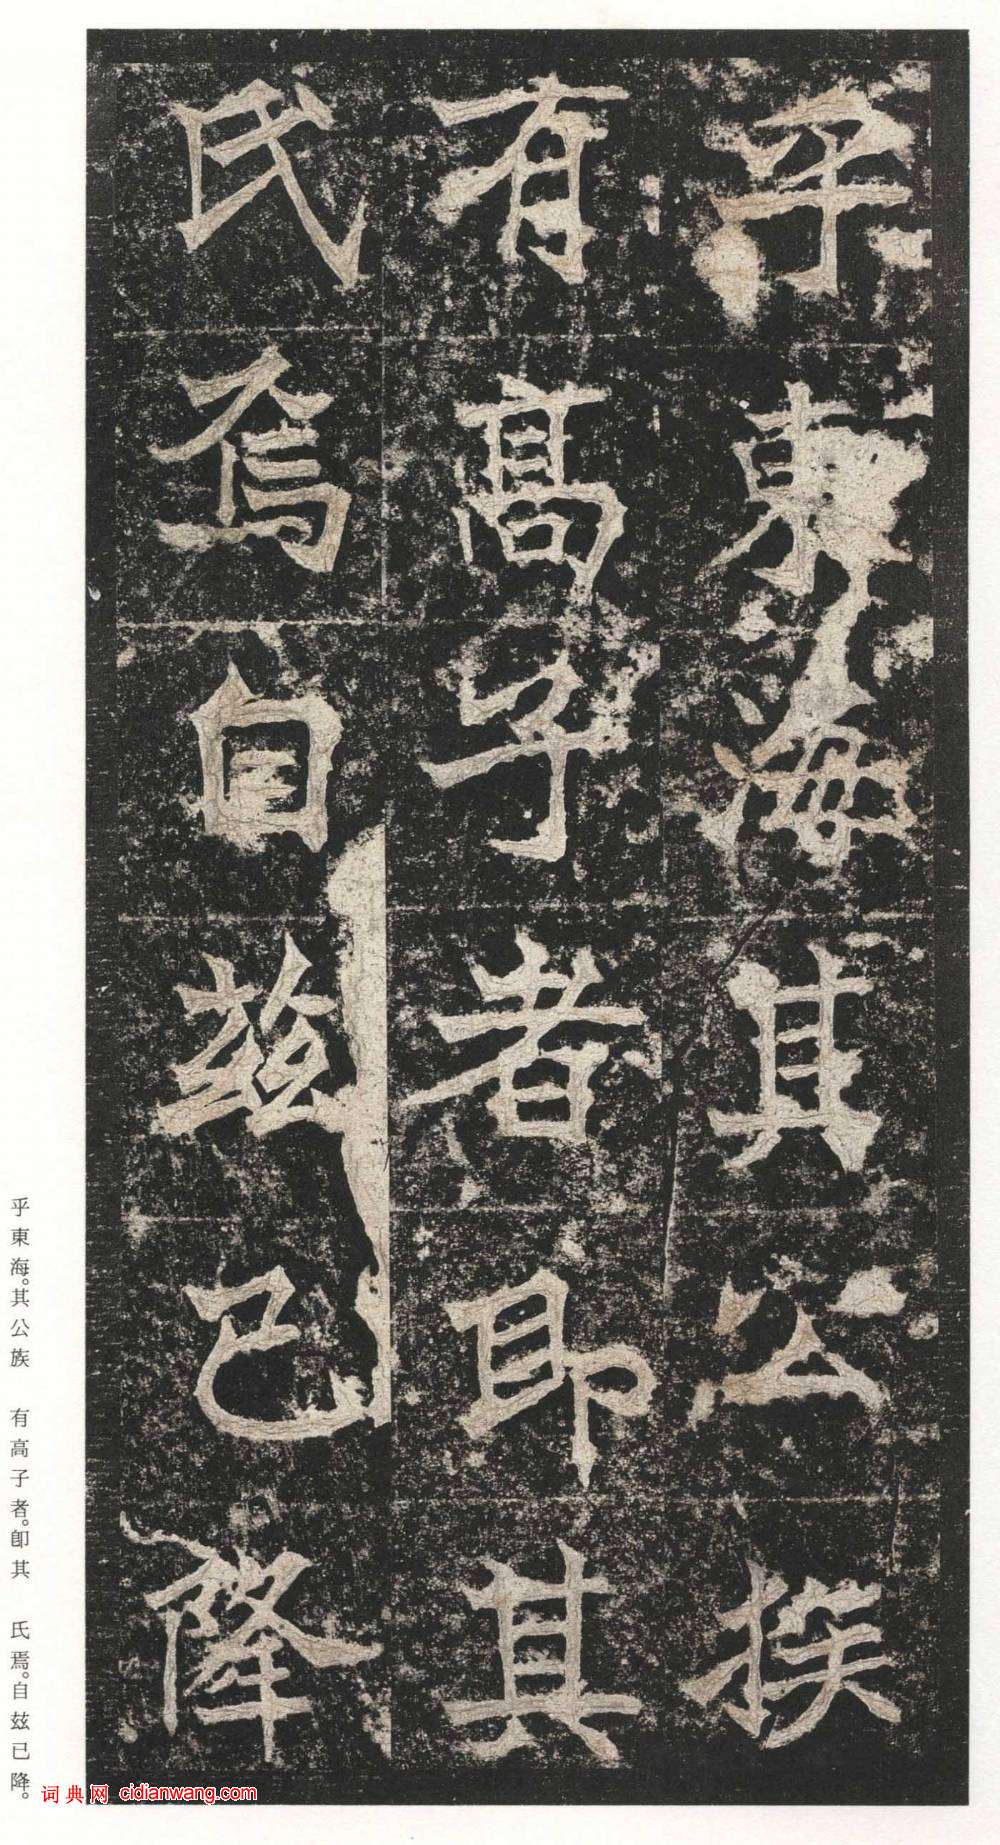 乎東海其公族
有高子者即其
氏焉自茲已降
乎東海。其公族　有高子者。卽其　氏焉。自兹已降。
词典网 cidianwang.com